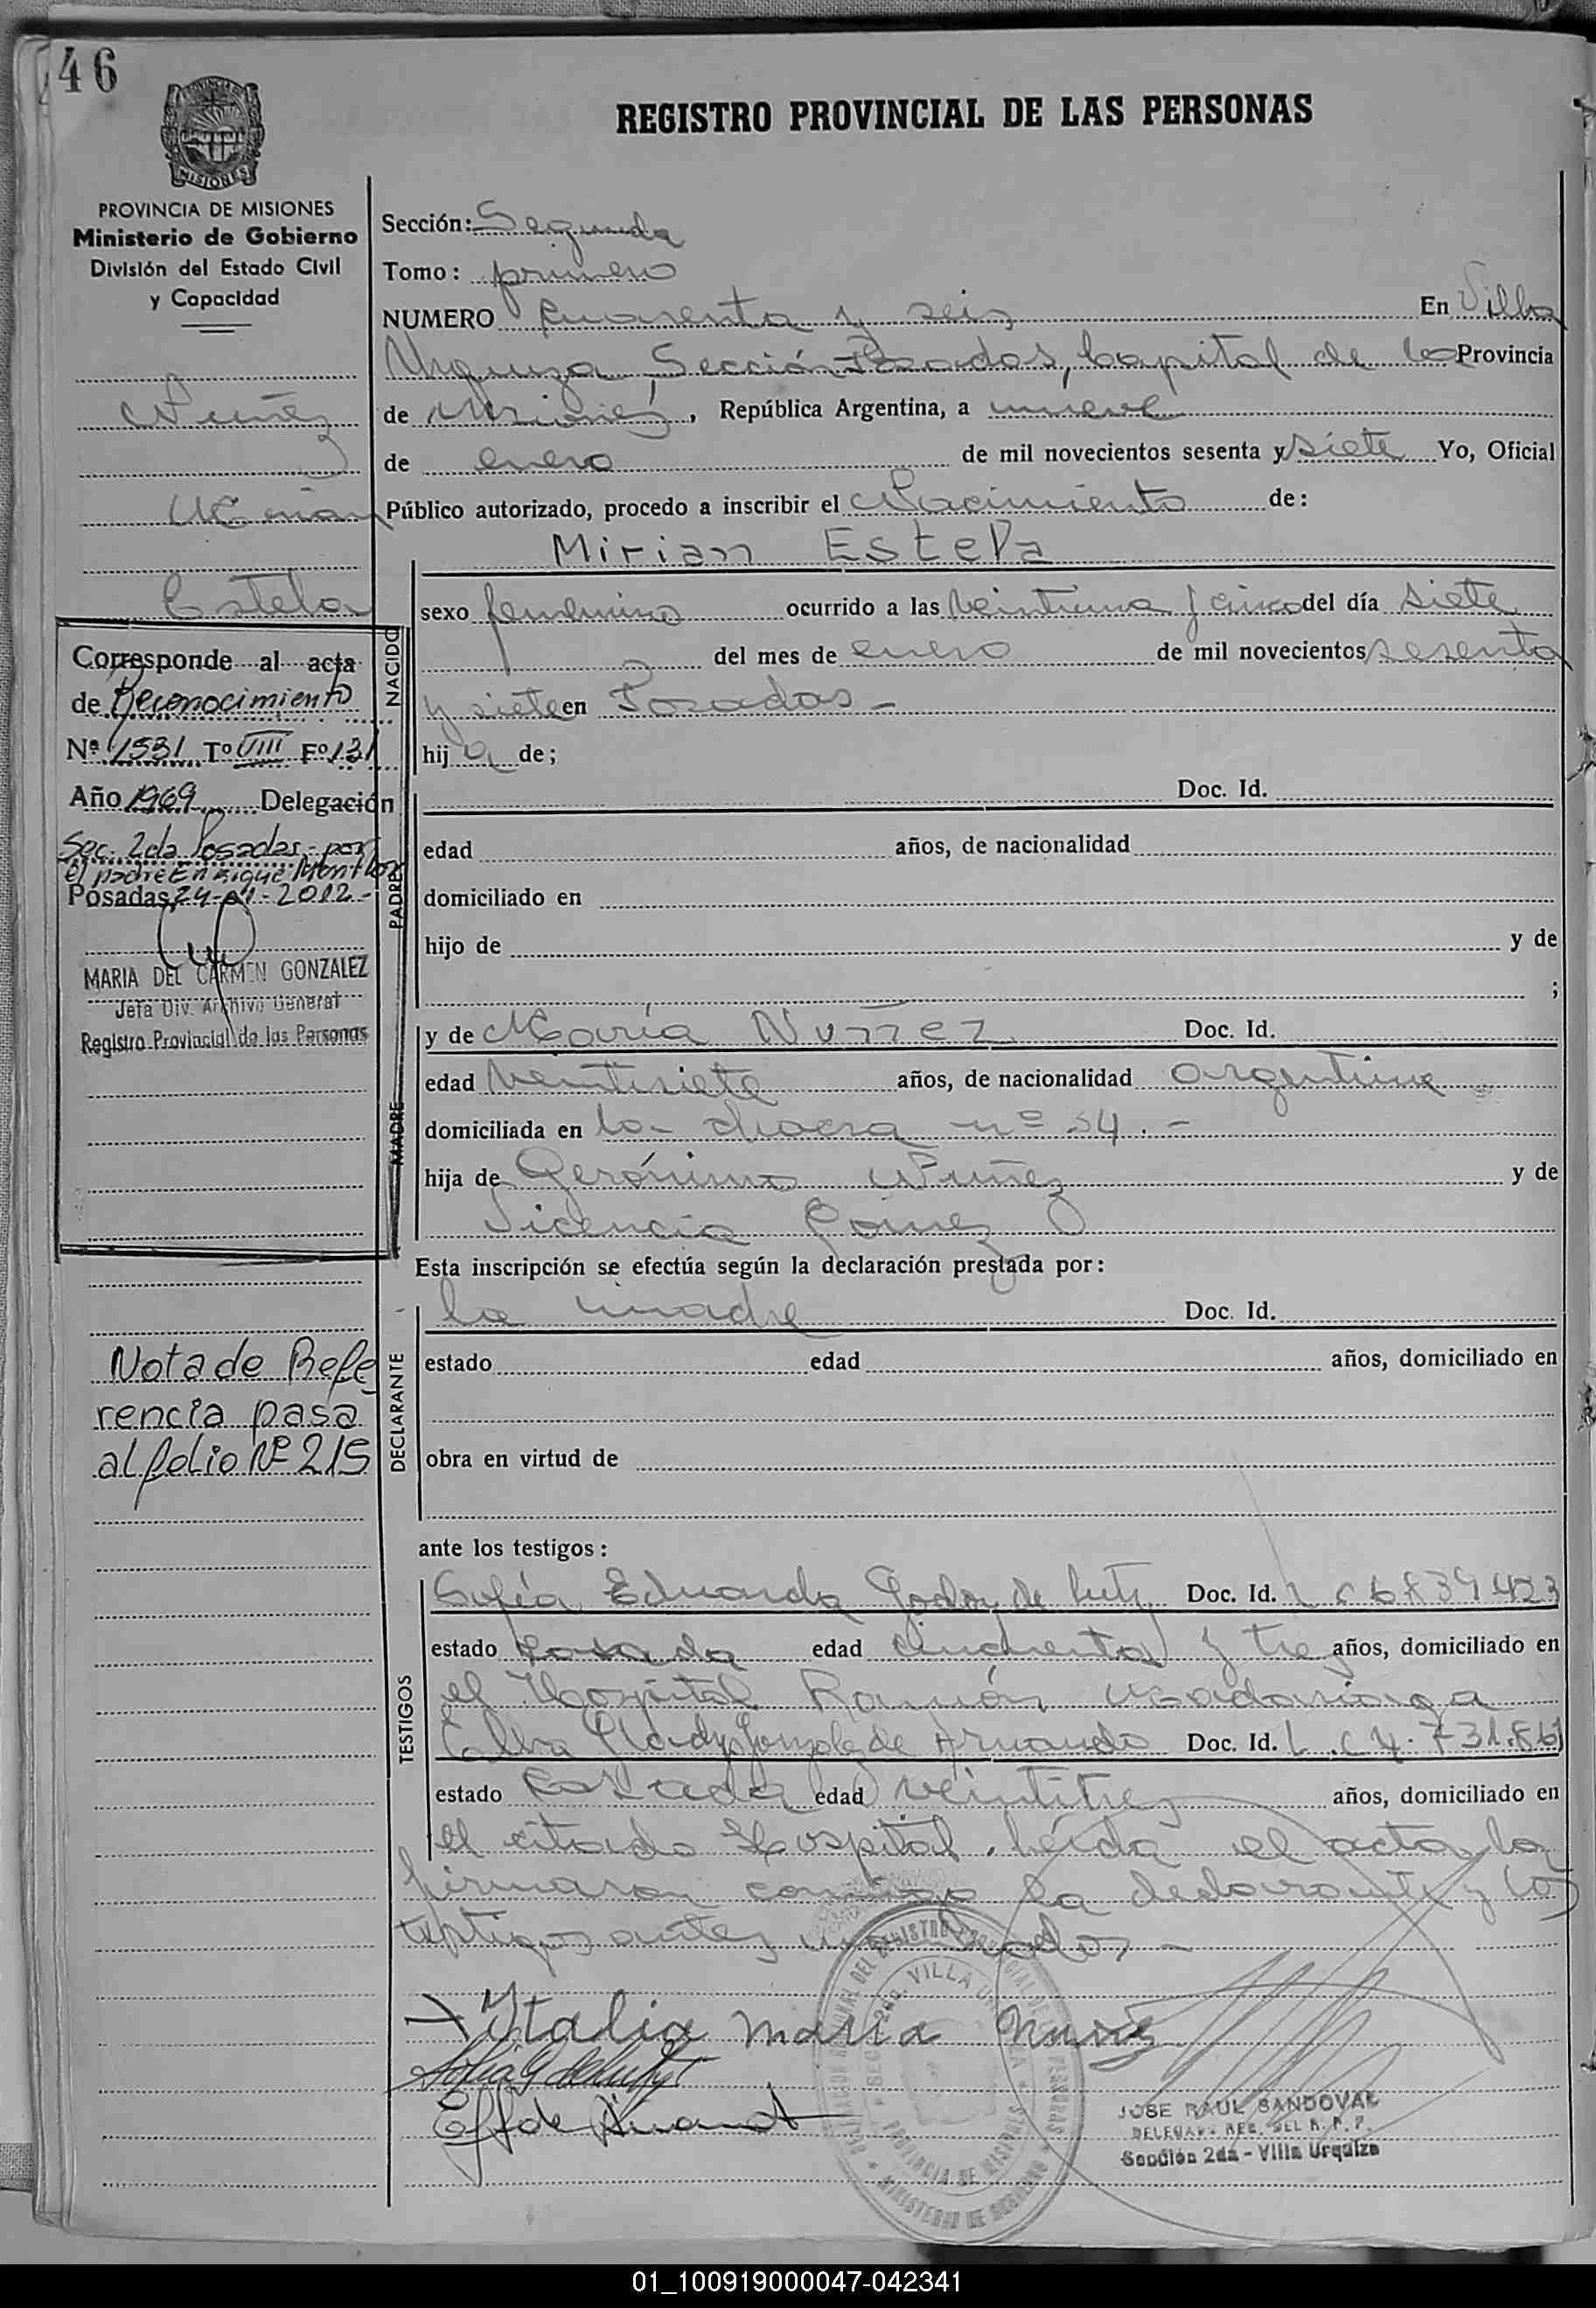 46
REGISTRO PROVINCIAL DE LAS PERSONAS
MISIONES
PROVINCIA DE MISIONES
Ministerio de Gobierno
División del Estado Civil
y Capacidad
Nuñez
Mirian
Estela
Corresponde al acta
de Reconocimiento
Nº 1531 Tº VIII Fº 131
Año 1969 Delegación
Sec. 2da Posadas - por
el padre Enrique
Posadas, 24-01-2012-
MARIA DEL CARMEN GONZALEZ
Jefa Div. Archivo General
Registro Provincial de las Personas
Nota de Refe
rencia pasa
al folio Nº 215
Sección: Segunda
Tomo: primero
NUMERO Cuarenta y seis En Villa
Urquiza, Sección Posadas, Capital de la Provincia
de Misiones, República Argentina, a nueve
de enero de mil novecientos sesenta y siete Yo, Oficial
Público autorizado, procedo a inscribir el Nacimiento de:
Mirian Estela
NACIDO
sexo femenino ocurrido a las veintiuna y cinco del día siete
del mes de enero de mil novecientos sesenta
y siete en Posadas -
hija de;
PADRE
Doc. Id.
edad años, de nacionalidad
domiciliado en
hijo de y de
;
MADRE
y de María Nuñez Doc. Id.
edad veintisiete años, de nacionalidad argentina
domiciliada en la chacra nº 34. -
hija de Gerónimo Nuñez y de
Vicencia Gómez
Esta inscripción se efectúa según la declaración prestada por:
DECLARANTE
la madre Doc. Id.
estado edad años, domiciliado en
obra en virtud de
ante los testigos:
TESTIGOS
Sofía Eduarda Godoy de Doc. Id. L C
estado casada edad cincuenta y tres años, domiciliado en
el Hospital Ramón Madariaga
Elba Gladys Gonzalez de Doc. Id. L.C 4.731.861
estado casada edad veintitres años, domiciliado en
el citado Hospital. Leída el acta la
firmaron conmigo la declarante y los
testigos antes nombrados -
Italia maria nuñes
JOSE RAUL SANDOVAL
DELEGADO REG. DEL R. P. P.
Sección 2da - Villa Urquiza
01_100919000047-042341